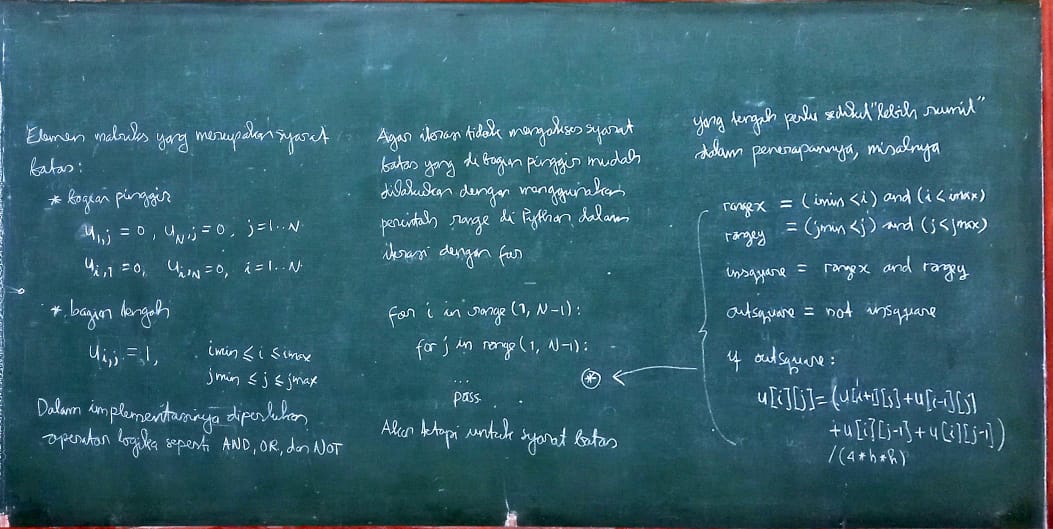 Elemen matriks yang merupakan syarat
batas:
* bagian pinggir
u1,j = 0, uN,j = 0, j = 1...N
ui,1 = 0, ui,N = 0, i = 1...N
* bagian tengah
ui,j = 1, imin ≤ i ≤ imax
jmin ≤ j ≤ jmax
Dalam implementasinya diperlukan
operator logika seperti AND, OR, dan NOT
Agar iterasi tidak mengakses syarat
batas yang di bagian pinggir mudah
dilakukan dengan menggunakan
perintah range di Python dalam
iterasi dengan for
for i in range(1, N-1):
for j in range(1, N-1):
...
pass
Akan tetapi untuk syarat batas
yang tengah perlu sedikit "lebih rumit"
dalam penerapannya, misalnya
rangex = (imin < i) and (i < imax)
rangey = (jmin < j) and (j < jmax)
insquare = rangex and rangey
outsquare = not insquare
if outsquare:
u[i][j] = (u[i+1][j] + u[i-1][j]
+ u[i][j-1] + u[i][j-1])
/(4*h*h)
*